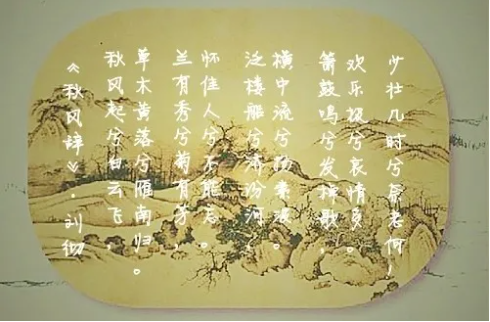 《秋风辞》·刘彻
秋风起兮白云飞，
草木黄落兮雁南归。
兰有秀兮菊有芳，
怀佳人兮不能忘。
泛楼船兮济汾河，
横中流兮扬素波。
箫鼓鸣兮发棹歌，
欢乐极兮哀情多。
少壮几时兮奈老何！